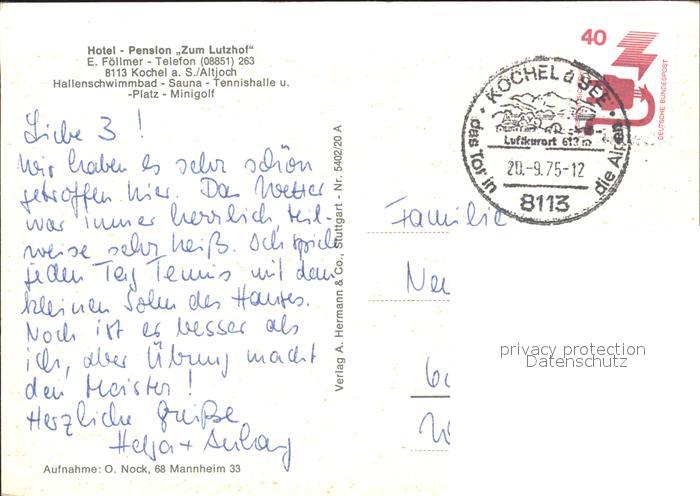 Hotel - Pension „Zum Lutzhof"
E. Föllmer - Telefon (08851) 263
8113 Kochel a. S./Altjoch
Hallenschwimmbad - Sauna - Tennishalle u.
-Platz - Minigolf
Liebe 3 !
Wir haben es sehr schön
getroffen hier. Das Wetter
war immer herrlich, teil-
weise sehr heiß. Ich spiele
jeden Tag Tennis mit dem
kleinen Sohn des Hauses.
Noch ist er besser als
ich, aber Übung macht
den Meister !
Herzliche Grüße
Helga + Anhang
Aufnahme: O. Nock, 68 Mannheim 33
Verlag A. Hermann & Co., Stuttgart - Nr. 5402/20 A
40
DEUTSCHE BUNDESPOST
KOCHEL a SEE
Luftkurort 613 m
20.-9.75-12
8113
das Tor in die Alpen
Familie
privacy protection
Datenschutz